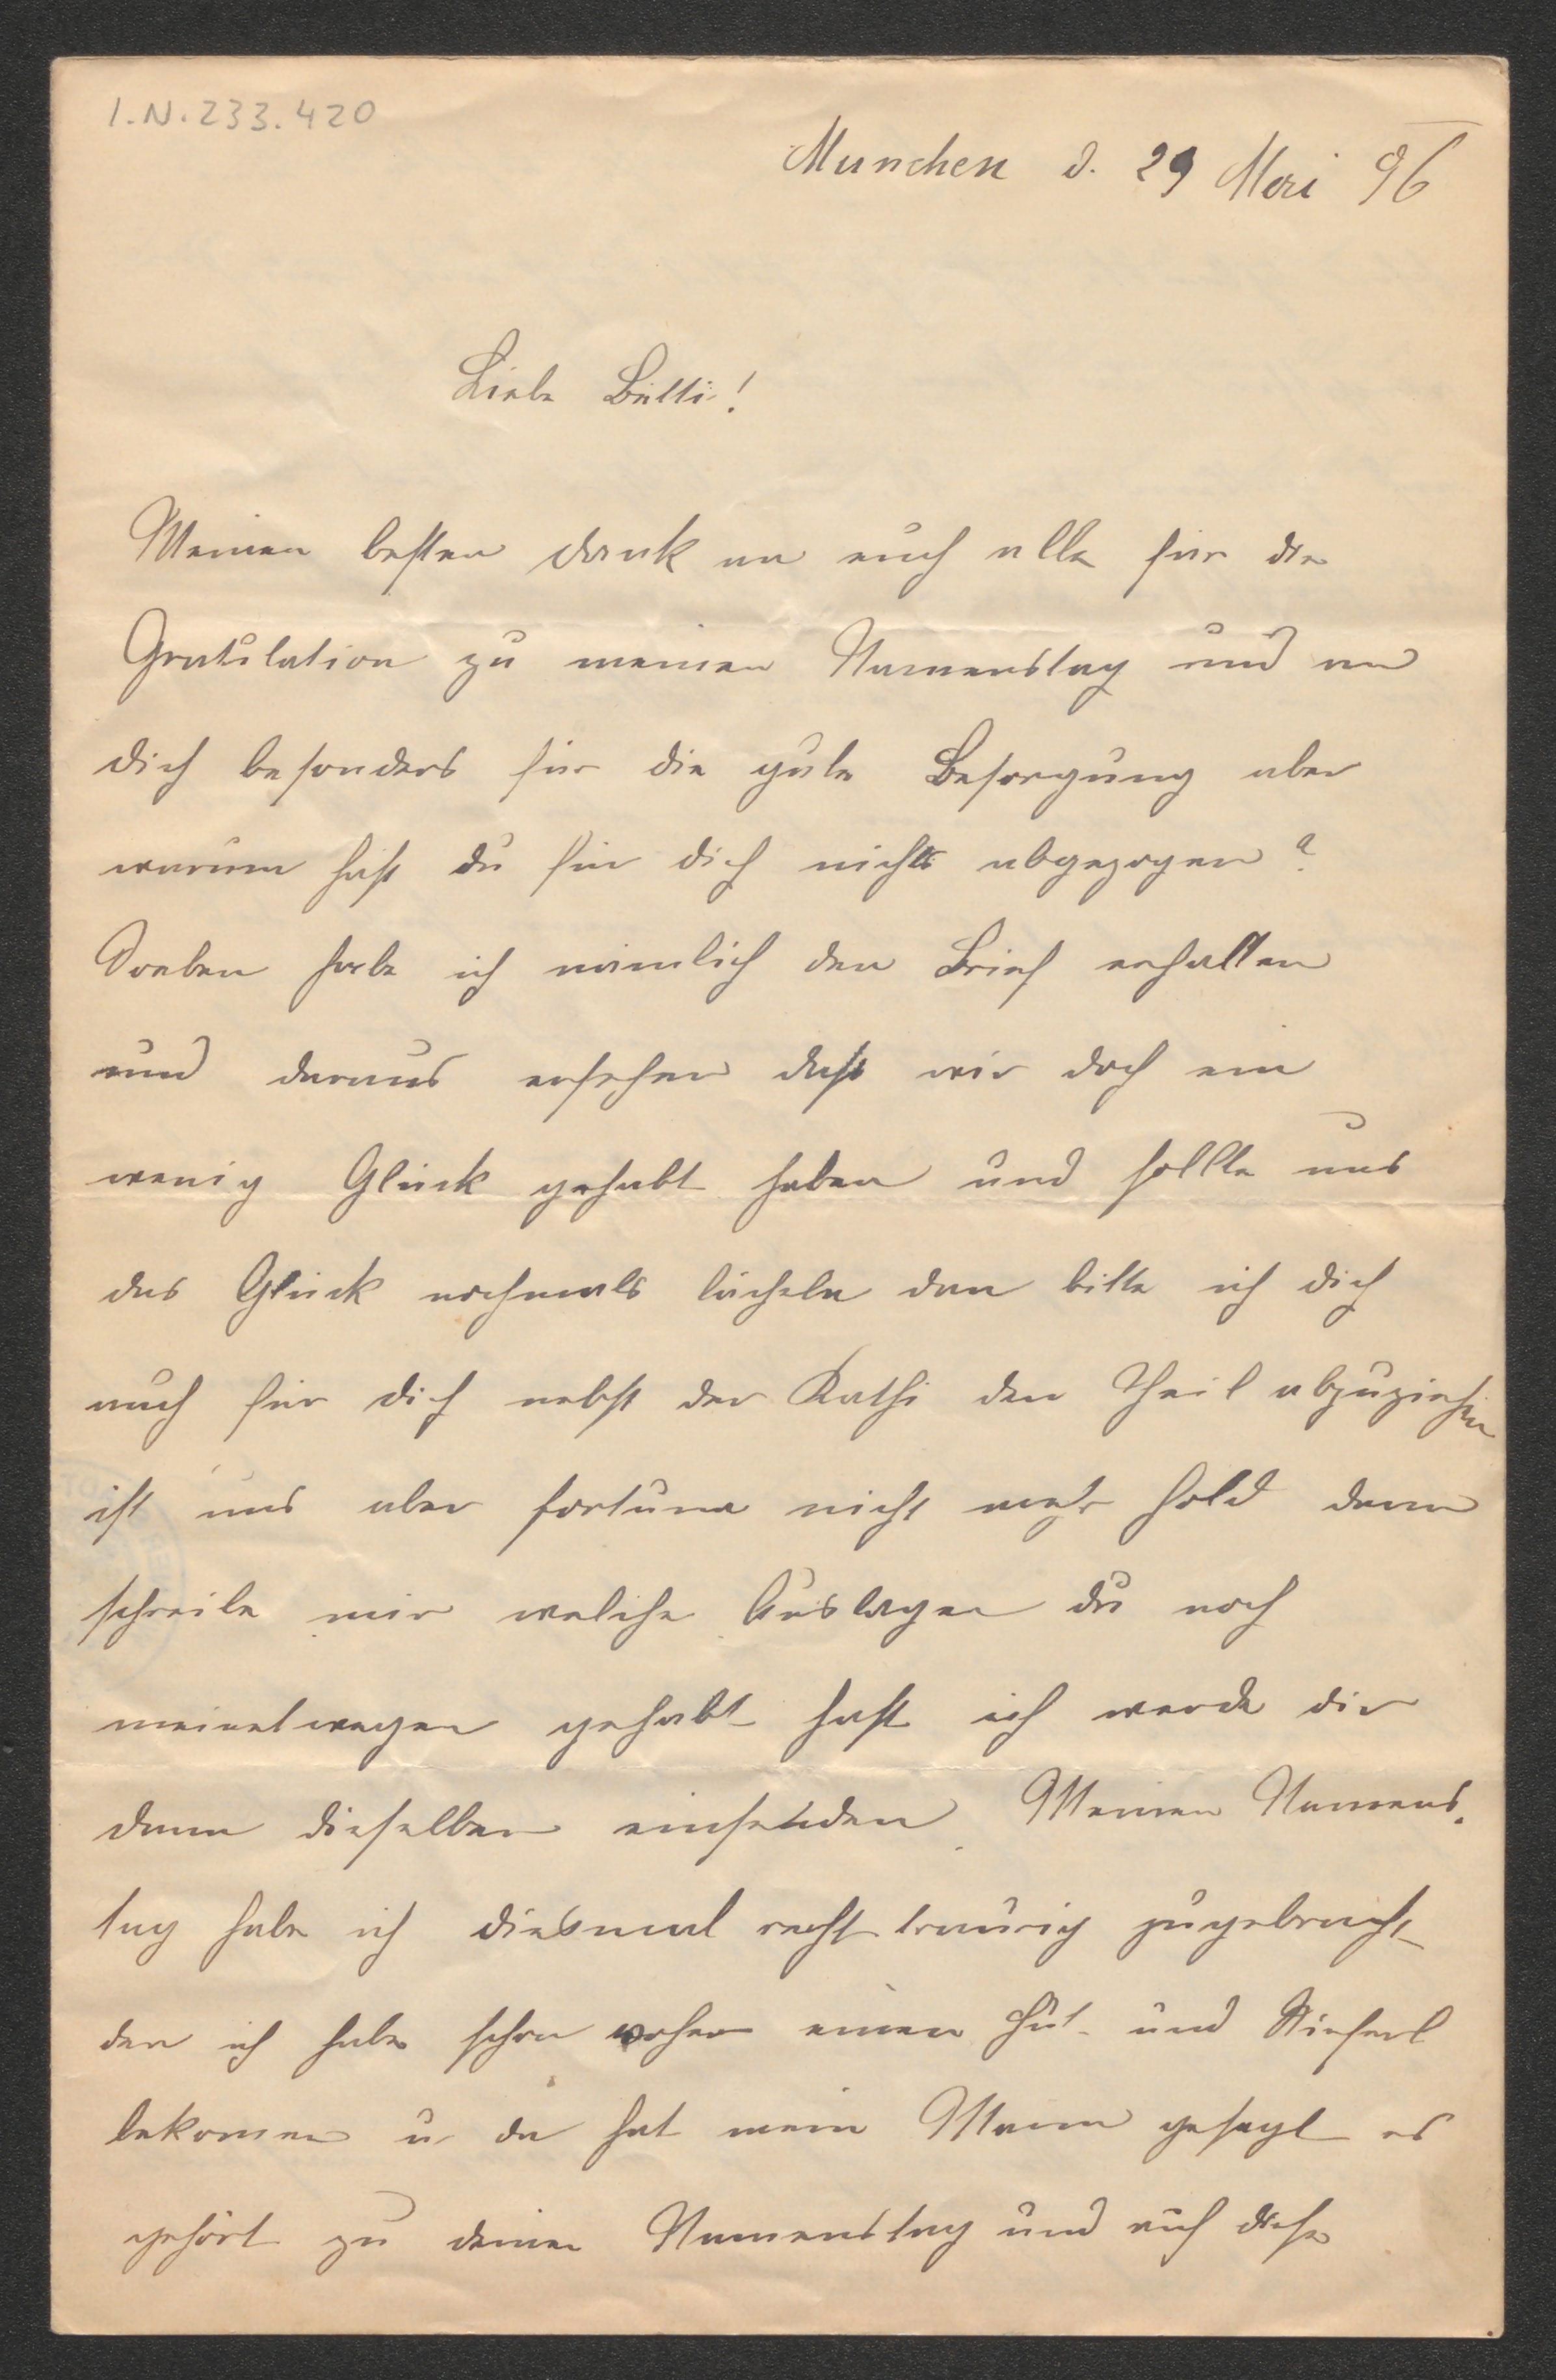 I.N. 233.420
Munchen d. 29 Mai 96
Liebe Betti!
Meinen besten Dank an euch alle für die
Gratulation zu meinen Namenstag und an
dich besonders für die gute Besorgung aber
warum hast du für dich nichts abgezogen?
Soeben habe ich nämlich den Brief erhalten
und daraus ersehen daß wir doch ein
wenig Glück gehabt haben und sollte uns
das Glück nochmals lächeln dan bitte ich dich
auch für dich nebst der Kathi den Theil abzuziehen
ist uns aber fortuna nicht mehr hold dann
schreibe mir welche Auslagen du noch
meinetwegen gehabt hast ich werde dir
dann dieselben einsenden. Meinen Namens-
tag habe ich diesmal recht traurig zugebracht
den ich habe schon vorher einen Hut und Stieferl
bekomen u. da hat mein Mann gesagt es
gehört zu deinen Namenstag und auf diese